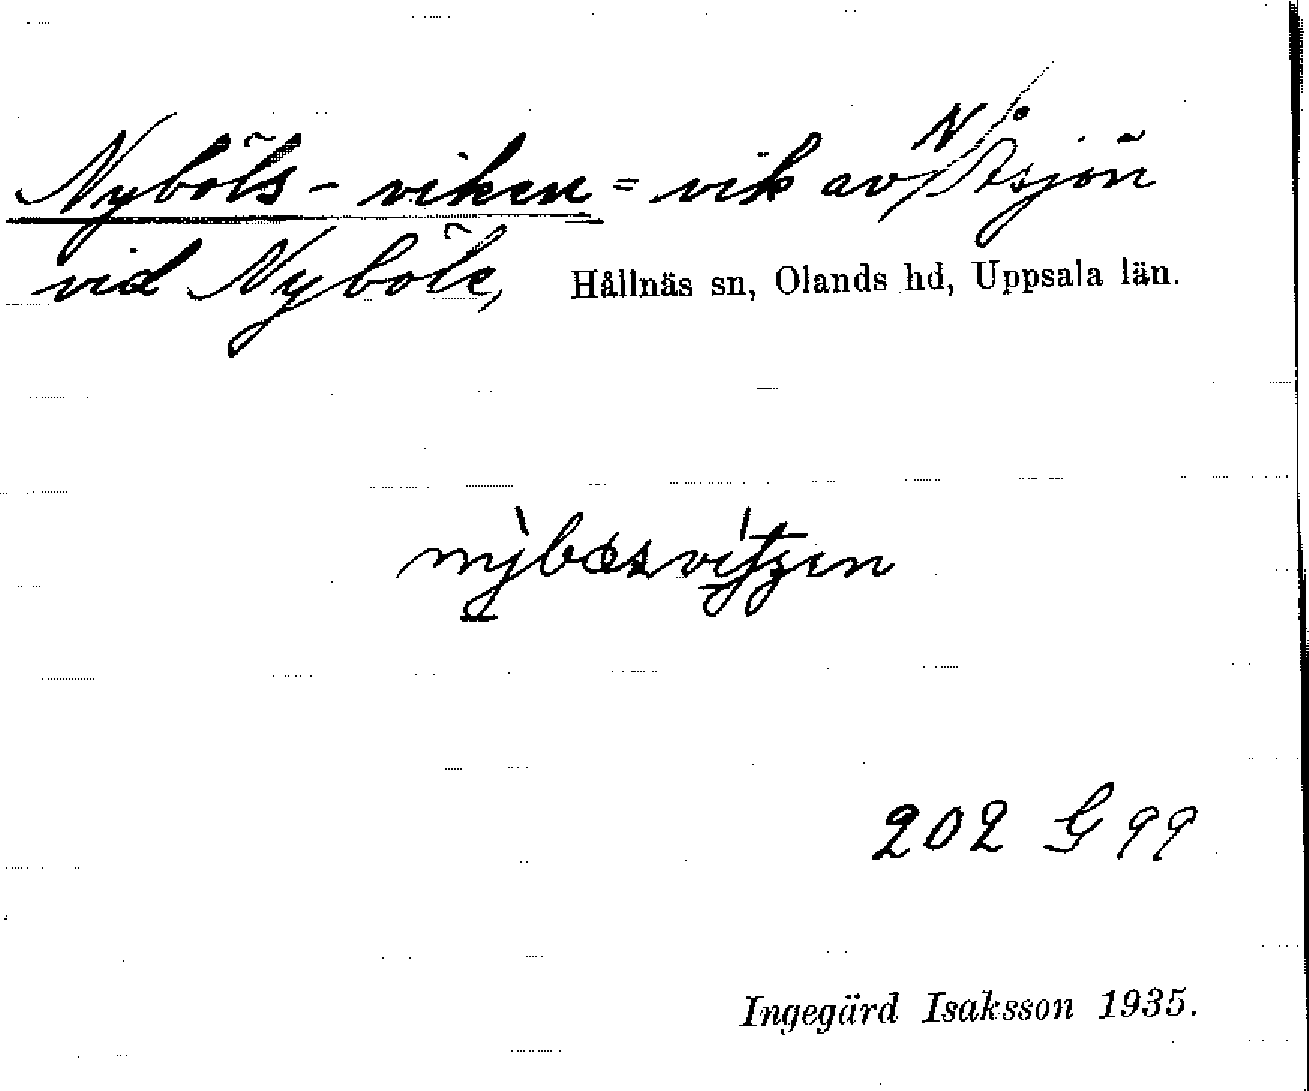 Nyböls-viken = vik av N. Åsjön
vid Nyböle, Hållnäs sn, Olands hd, Uppsala län.
202 G 99
Ingegärd Isaksson 1935.